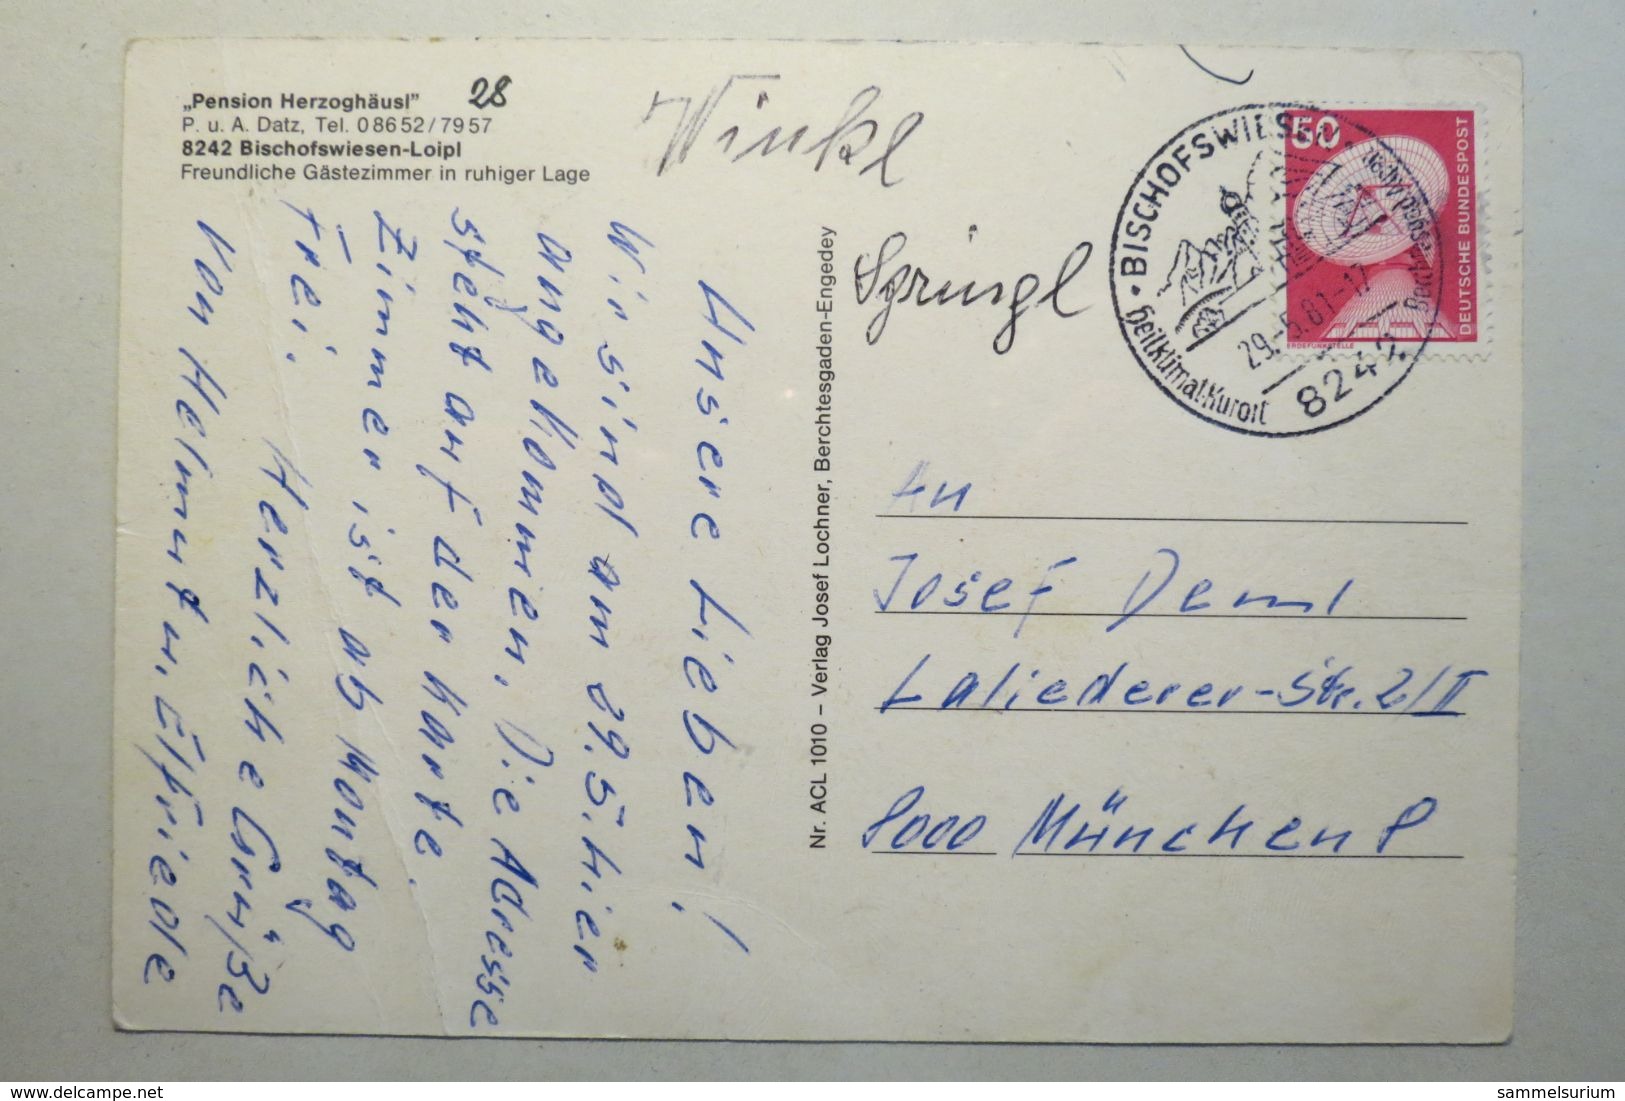 „Pension Herzoghäusl"
P. u. A. Datz, Tel. 08652/7957
8242 Bischofswiesen-Loipl
Freundliche Gästezimmer in ruhiger Lage
28
Winkl
Unsere Lieben!
Wir sind am 29.5. hier
angekommen. Die Adresse
steht auf der Karte.
Zimmer ist ab Montag
Frei.
Herzliche Grüße
Von Helmut u. Elfriede
Nr. ACL 1010 – Verlag Josef Lochner, Berchtesgaden-Engedey
BISCHOFSWIESEN
heilklimat. Kurort
29.-5.81-17
8242
50
DEUTSCHE BUNDESPOST
ERDEFUNKSTELLE
An
Josef Deml
Laliederer-Str. 2/II
8000 München 8
For sale on delcampe.net
sammelsurium